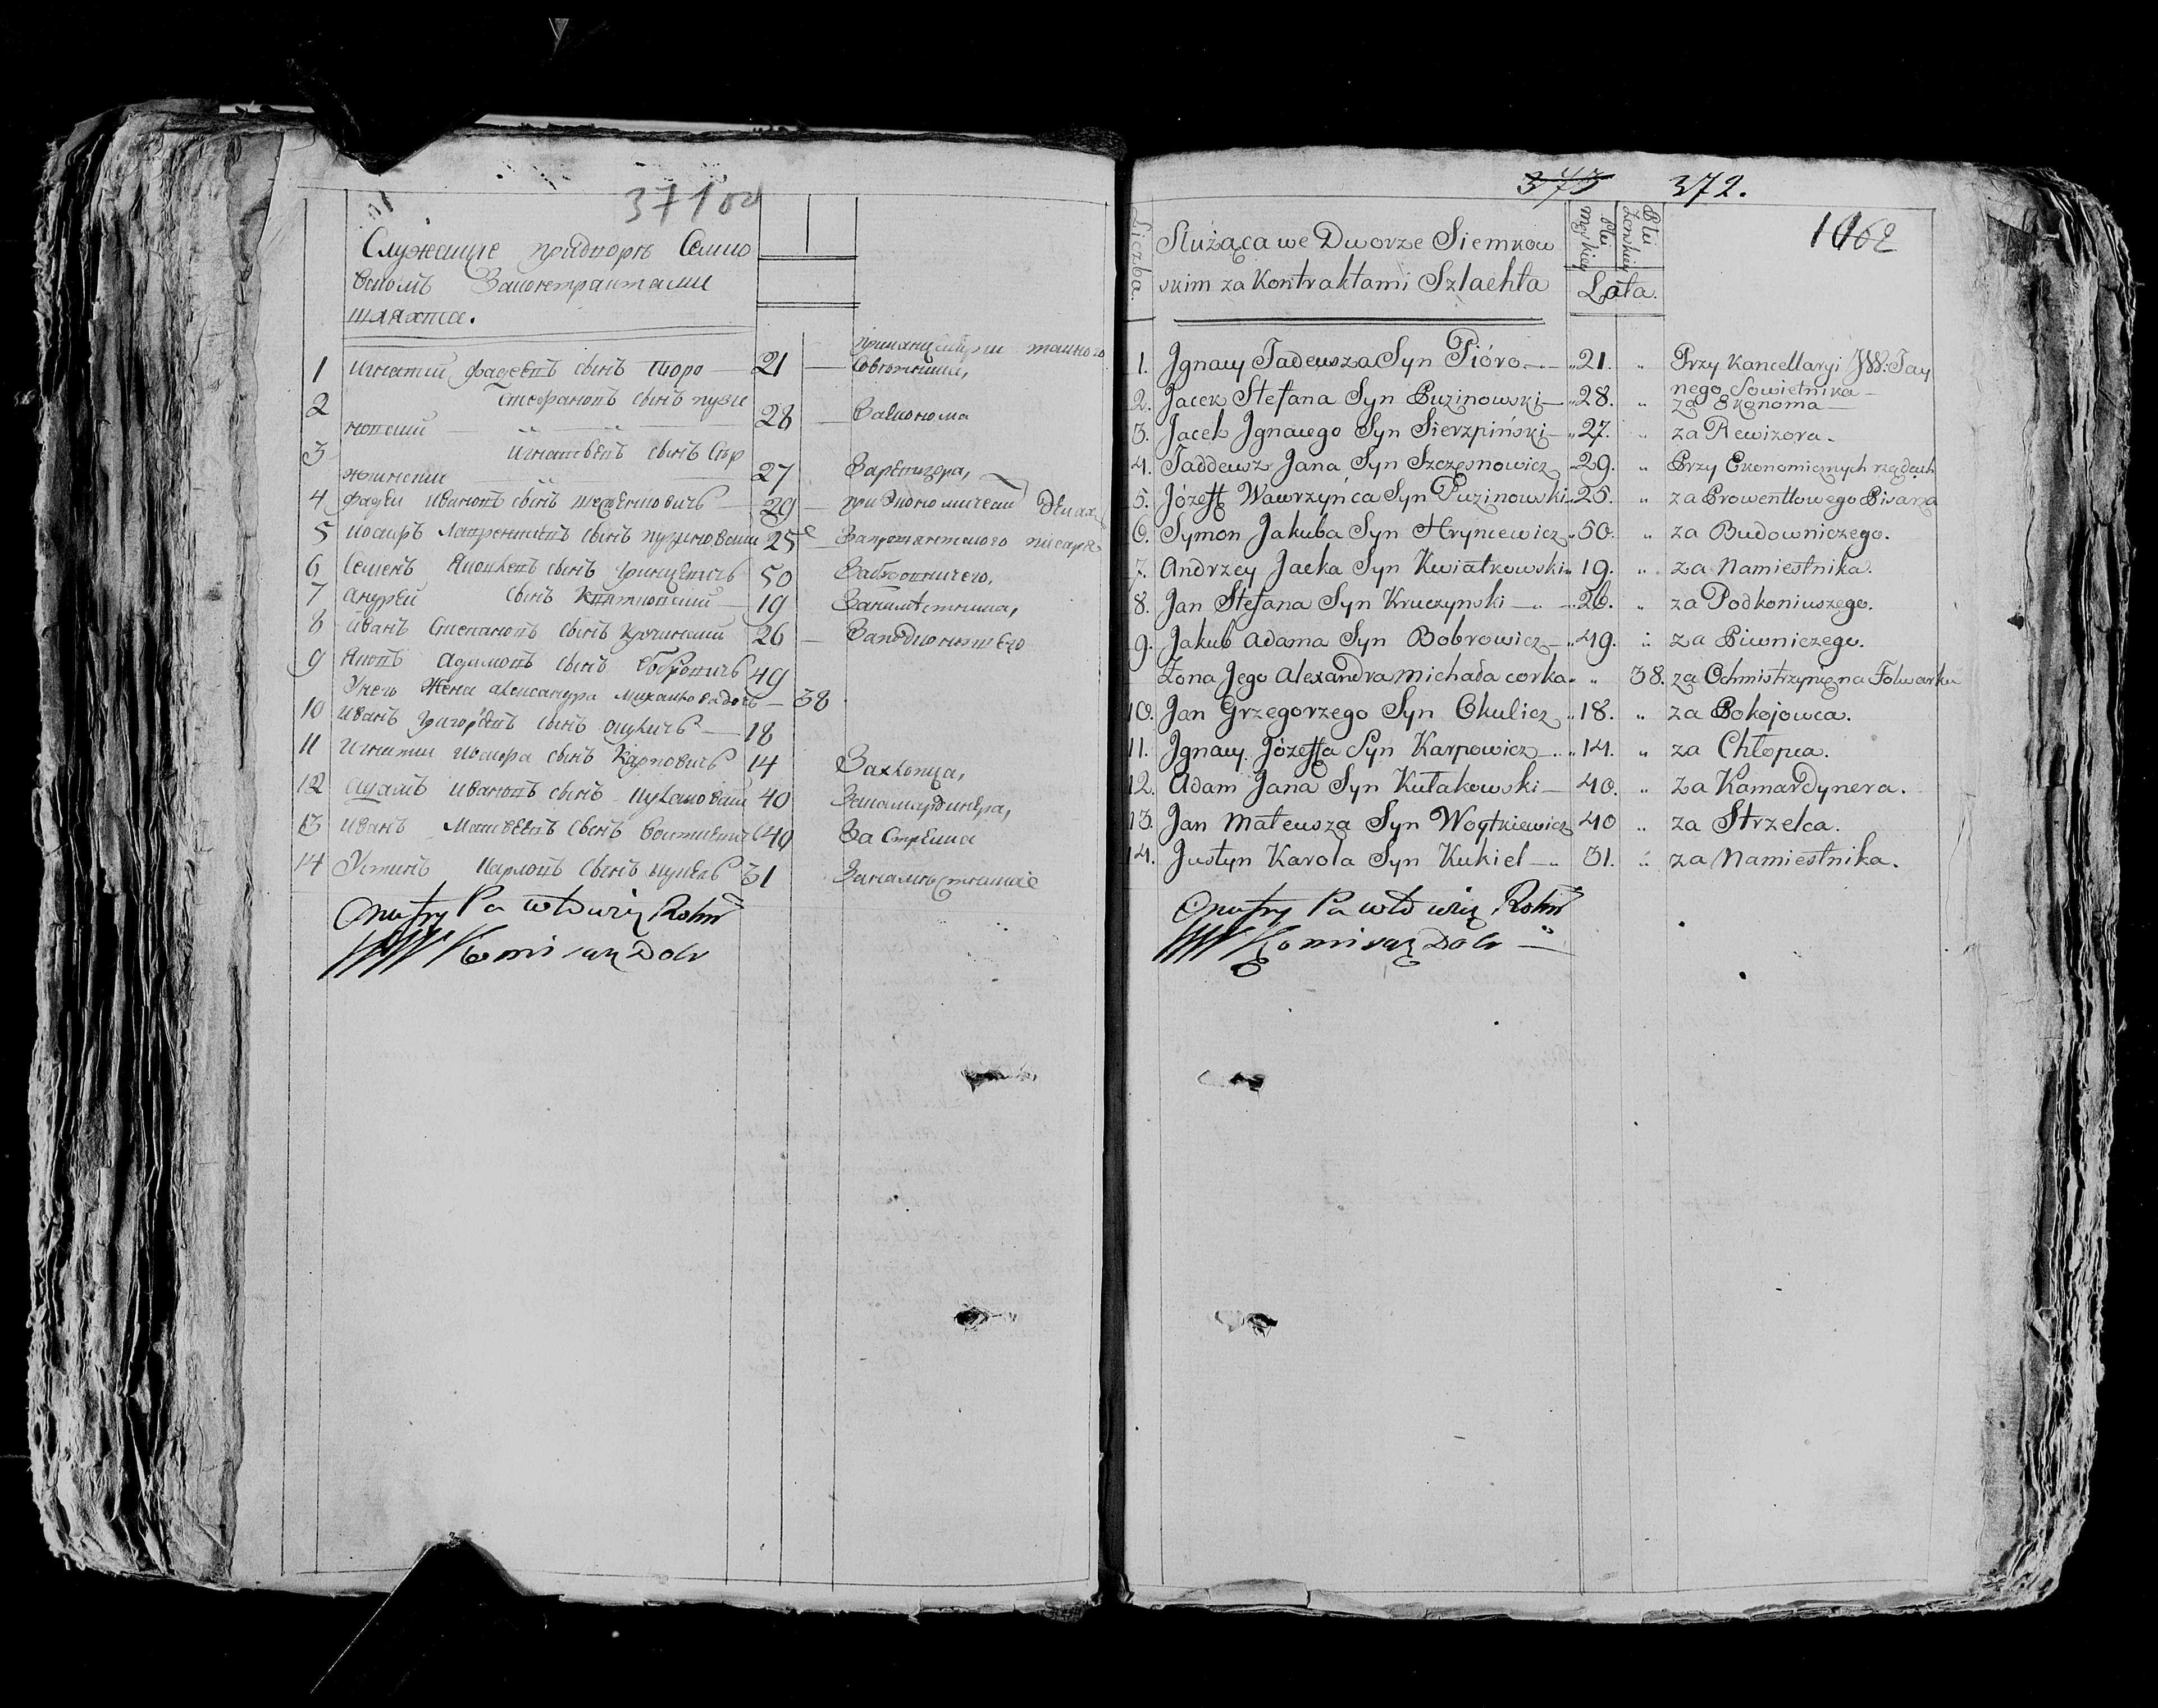 371 об
Служащие придворѣ Семко
вскомъ Законтрактами
шляхта.
1 Игнатий Фадеевъ сынъ Пюро — 21 — приканцелярии тайного
Советника,
2 Стефановъ сынъ пузи
новский — 28 — Заэконома
3 Игнатьевъ сынъ Сер
жпинский 27 Заревизора,
4 Фадеи Ивановъ сынъ щесновичъ — 29 — при экономическ делах
5 Иосифъ Лавреньтевъ сынъ пузиновский 25 — Запровентового писаря
6 Семенъ Яковлевъ сынъ гринцевичъ 50 Забудовничего,
7 андрей сынъ Квятковский — 19 Занаместника,
8 Иванъ Степановъ сынъ кручинский 26 — Заподконюшего
9 Яковъ Адамовъ сынъ Бобровичъ 49
Унего Жена Александра Михайлова дочь — 38
10 Иванъ григорьевъ сынъ окуличъ — 18
11 Игнатии иосифа сынъ Карповичъ 14 Захлопца,
12 Адамъ Ивановъ сынъ кулаковский 40 Закамардинера,
13 Иванъ Матвеевъ сынъ Войткевич 40 За Стрелца
14 Устинъ Карловъ сынъ кукель 31 Занаместника
Onufry Pawłowicz Rotm
JWW Komisarz Dobr
373 372.
1062
Liczba. Służąca we Dworze Siemkow
skim za Kontraktami Szlachta
Płci męskiey Płci Żenskiey
Lata.
1. Jgnacy Tadeusza Syn Pióro — 21. „ Przy Kancellaryi JW: Tay
nego Sowietnika —
2. Jacek Stefana Syn Puzinowski — 28. „ za Ekonoma —
3. Jacek Jgnacego Syn Sierzpiński — 27. „ za Rewizora.
4. Taddeusz Jana Syn Szczęsnowicz 29. „ Przy Ekonomicznych rządach
5. Józeff Wawrzyńca Syn Puzinowski 25. „ za Prowentowego Pisarza
6. Symon Jakuba Syn Hryncewicz 50. „ za Budowniczego.
7. Andrzey Jacka Syn Kwiatkowski 19. „ za Namiestnika.
8. Jan Stefana Syn Kruczynski — 26. „ za Podkoniuszego.
9. Jakub Adama Syn Bobrowicz — 49. „ za Piwniczego.
Żona Jego Alexandra Michała corka „ 38. za Ochmistrzynię na Folwarku
10. Jan Grzegorzego Syn Okulicz 18. „ za Pokojowca.
11. Jgnacy Józeffa Syn Karpowicz 14. „ za Chłopca.
12. Adam Jana Syn Kułakowski — 40. „ za Kamardynera.
13. Jan Mateusza Syn Woytkiewicz 40 „ za Strzelca.
14. Justyn Karola Syn Kukiel — 31. „ za Namiestnika.
Onufry Pawłowicz Rotm
JWW Komisarz Dobr